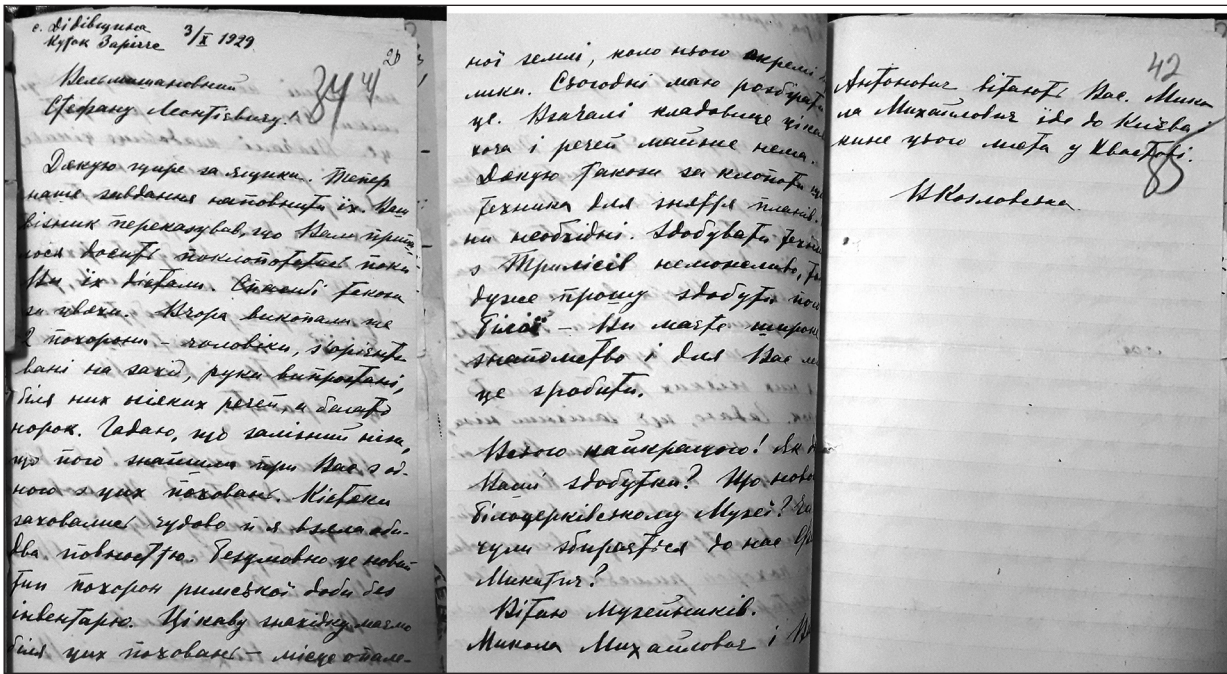 с. Дідівщина
Куток Зарічче 3/X 1929
20
Вельмишановний
Стефану Леонтієвичу!
Дякую щире за ящики. Тепер
наше завдання наповнити їх. Ваш
візник переказував, що Вам прий-
лося досить поклопотатись поки
Ви їх дістали. Спасибі також
за цвяхи. Вчора викопали ще
2 похорони – чоловіки, зорієнто
вані на захід, руки випростані,
біля них ніяких речей, а багато
норок. Гадаю, що залізний ніж,
що його знайшли при Вас з од-
ного з цих поховань. Кістяки
заховались чудово й я взяла оби-
два повностю. Безумовно це новий
тип похорон римської доби без
інвентарю. Цікаву знахідку маємо
біля цих поховань – місце опале-
ної землі, коло нього окремі
Сьогодні маю розбирати
це. Взагалі кладовище ціка
хоча і речей майже нема.
Дякую також за клопоти
техника для зняття планів.
ни необхідні. Здобувати техні
з Трилісів неможливо,
дуже прошу здобути
Білої – Ви маєте широк
знайомство і для Вас
це зробити.
Всього найкращого! Як
Ваші здобутки? Що нов
білоцерківському Музеї? Чи
чули збирається до нас
Микитич?
Вітаю музейників.
Микола Михайлович і
42
Антонович вітають Вас. Мико
ла Михайлович їде до Київа і
кине цього листа у Хвастові.
В Козловська